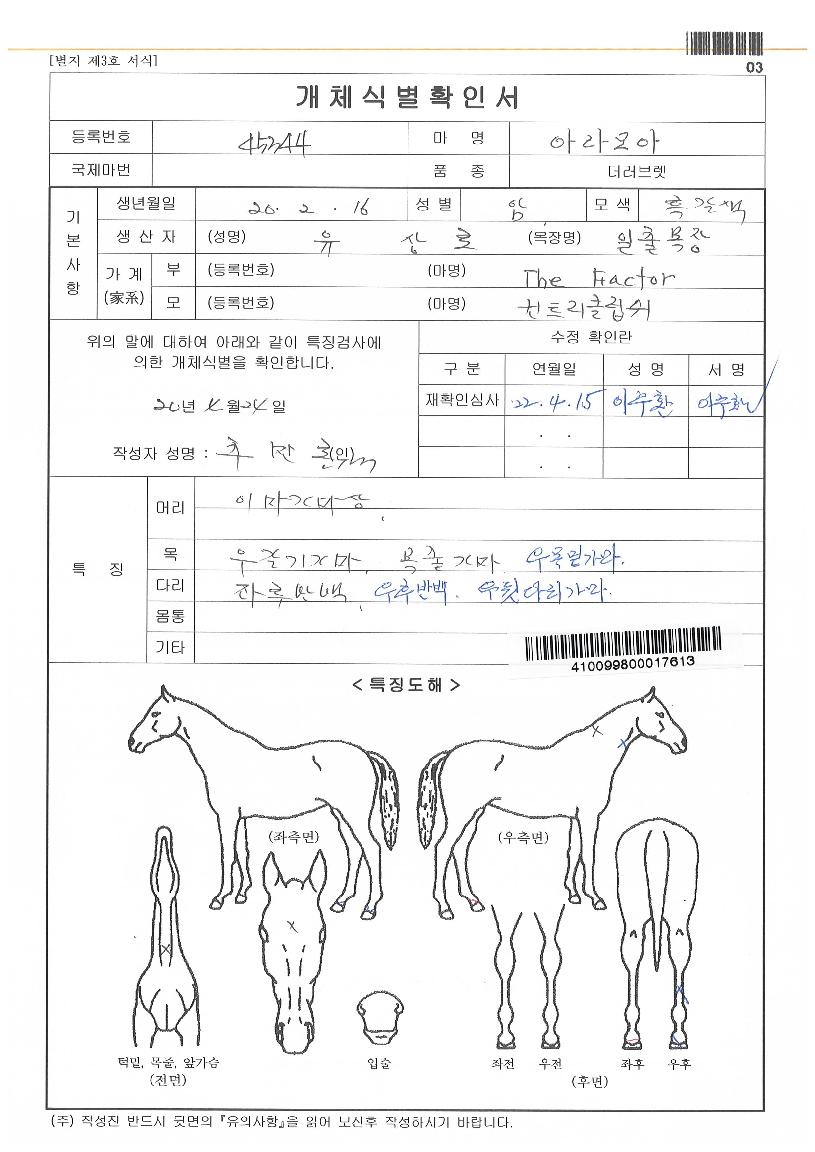 [별지 제3호 서식]
03
개체식별확인서
등록번호 45244 마 명 아라모아
국제마번 품 종 더러브렛
기본사항
생년월일 20. 2. 16 성별 암 모색 흑갈색
생산자 (성명) 유 상 로 (목장명) 일출목장
가계(家系) 부 (등록번호) (마명) The Factor
모 (등록번호) (마명) 컨트리클럽쉬
위의 말에 대하여 아래와 같이 특징검사에
의한 개체식별을 확인합니다.
20년 4월 24일
작성자 성명 : (인)
수정 확인란
구 분 연월일 성 명 서 명
재확인심사 22.4.15 이주환 이주환
. .
. .
특 징
머리
목 목줄가마, 우목밑가마.
다리 좌후반백, 우후반백. 우뒷다리가마.
몸통
기타
410099800017613
< 특징도해 >
(좌측면) (우측면)
턱밑, 목줄, 앞가슴
(전면)
입술
좌전 우전 좌후 우후
(후면)
(주) 작성진 반드시 뒷면의 『유의사항』을 읽어 보신후 작성하시기 바랍니다.